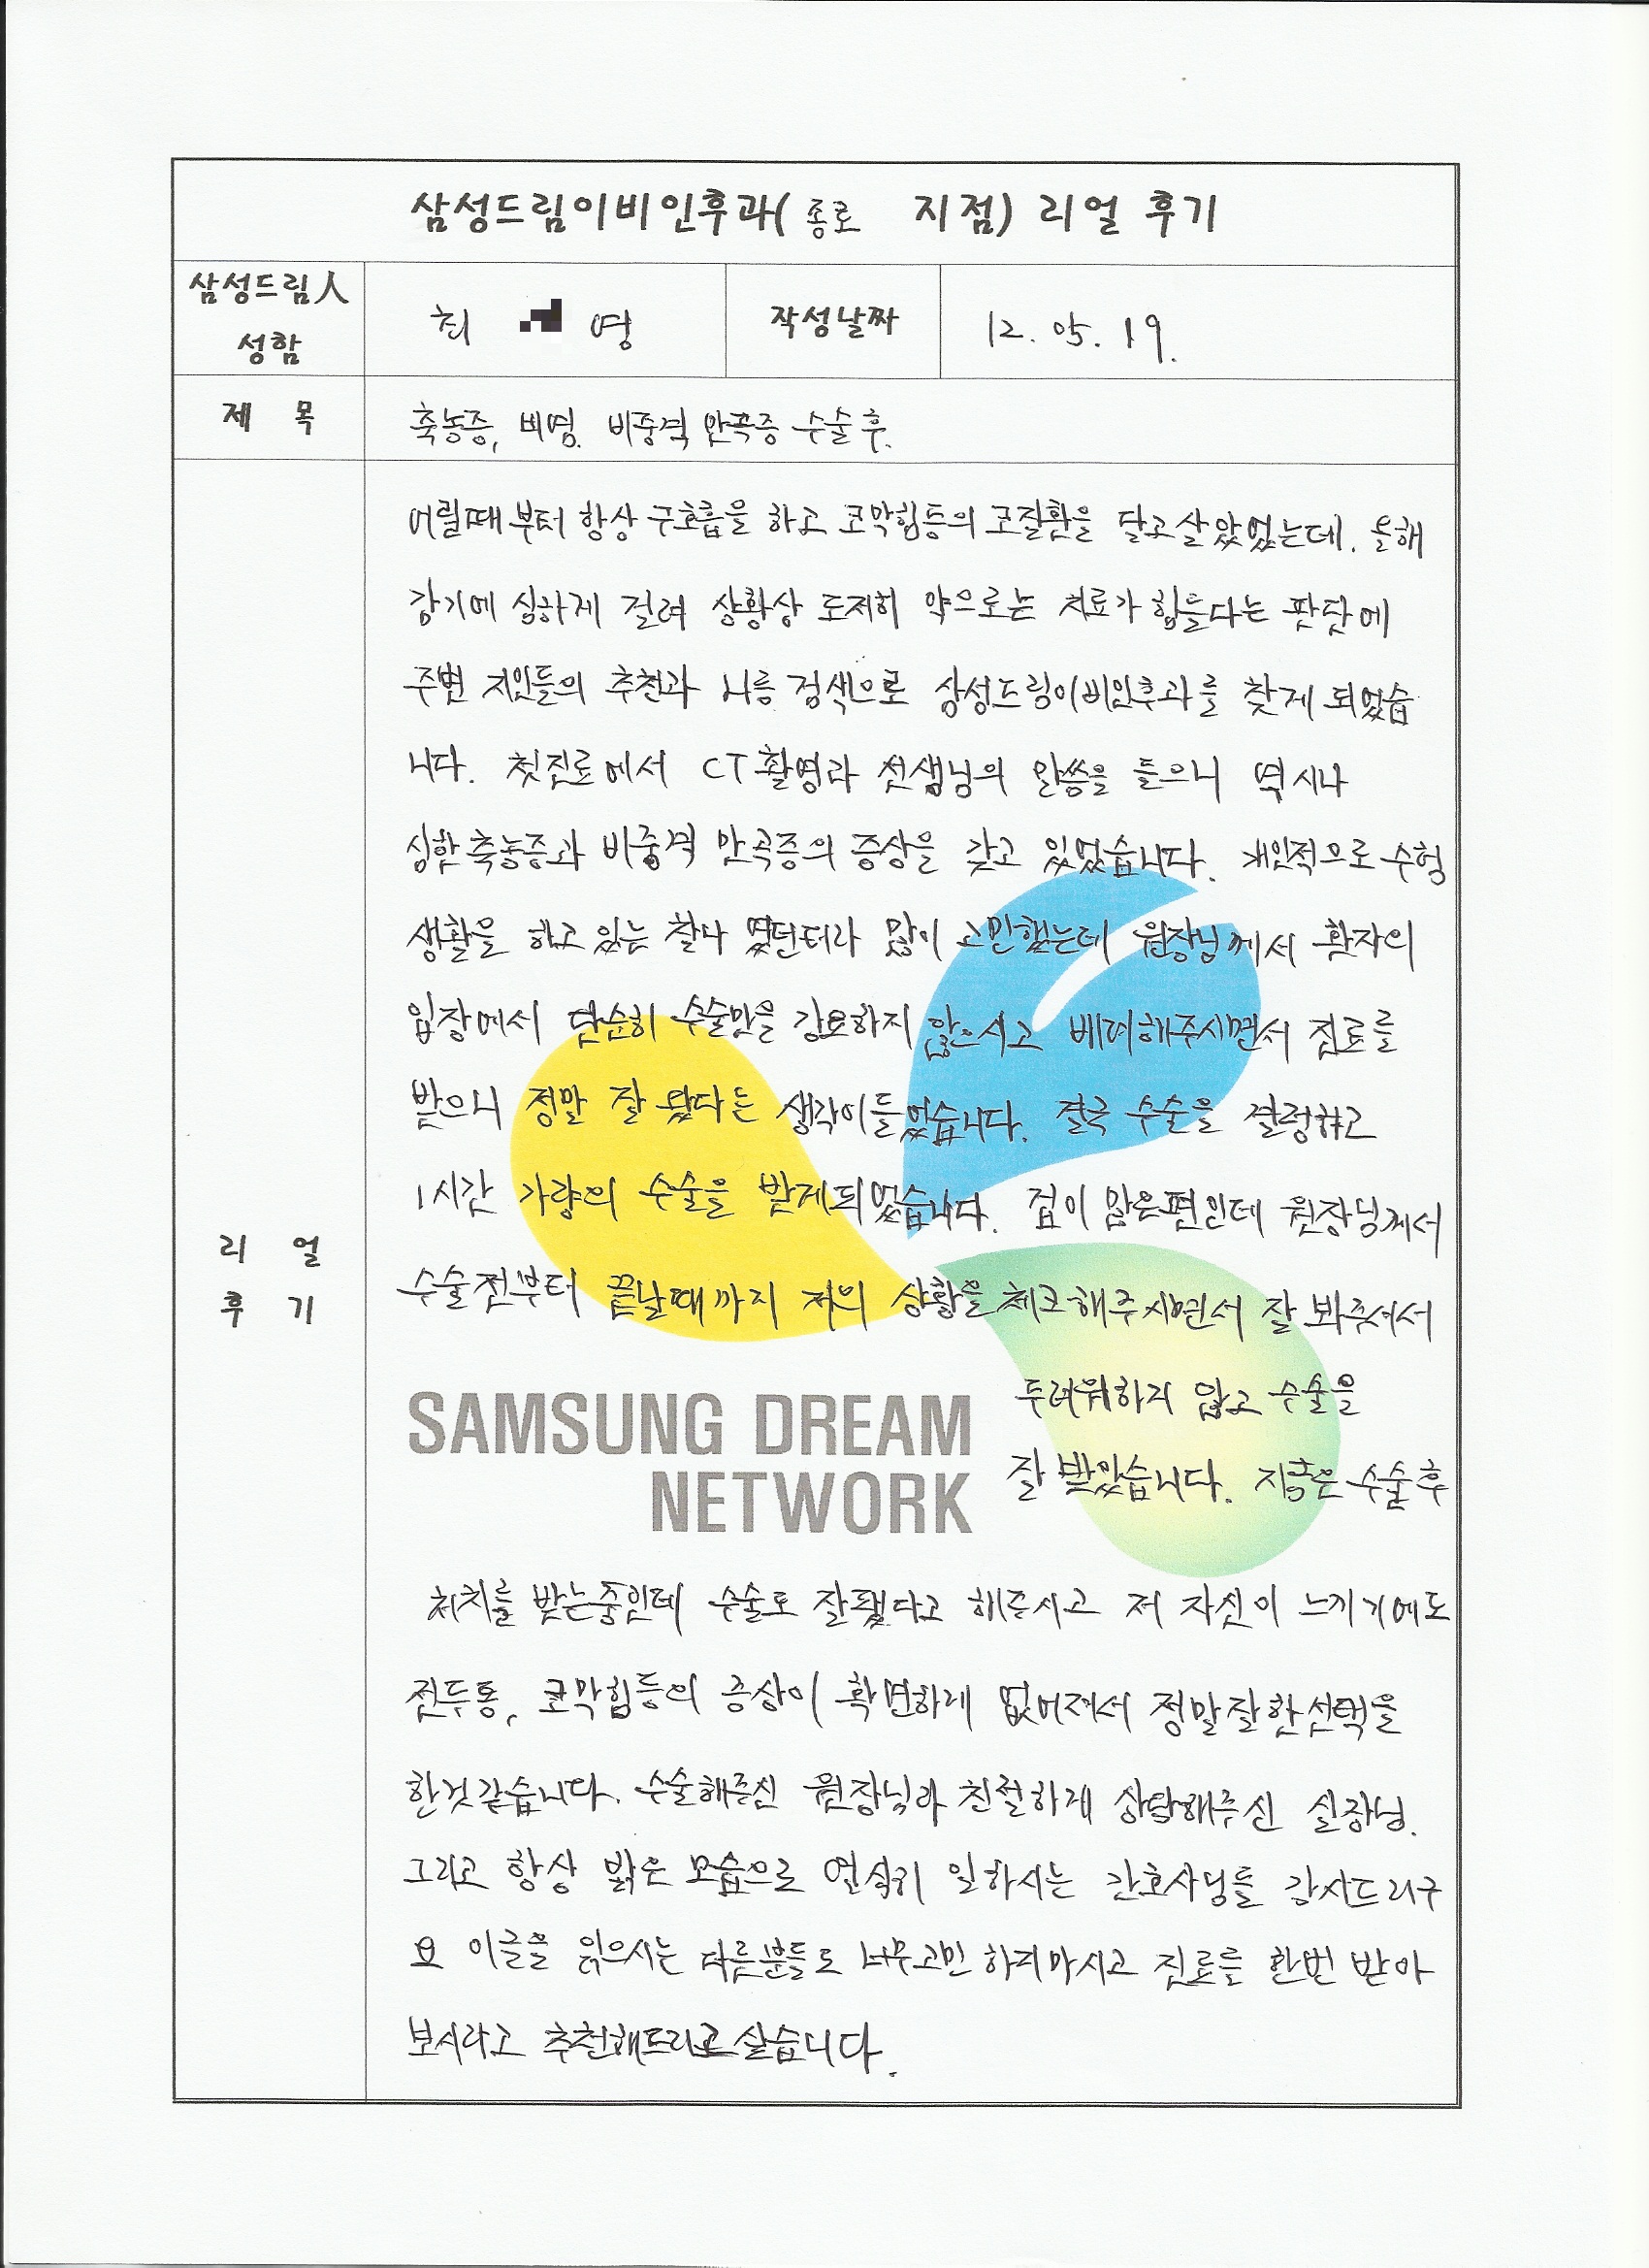 삼성드림이비인후과( 종로 지점) 리얼 후기
삼성드림人
성함
최 영
작성날짜
12. 05. 19.
제 목
축농증, 비염. 비중격 만곡증 수술 후.
리 얼
후 기
어릴때부터 항상 구호흡을 하고 코막힘등의 코질환을 달고살았었는데. 올해
감기에 심하게 걸려 상황상 도저히 약으로는 치료가 힘들다는 판단에
주변 지인들의 추천과 나름 검색으로 삼성드림이비인후과를 찾게 되었습
니다. 첫진료에서 CT촬영과 선생님의 말씀을 들으니 역시나
심한 축농증과 비중격 만곡증의 증상을 갖고 있었습니다. 개인적으로 수험
생활을 하고 있는 찰나 였던터라 많이 고민했는데 원장님께서 환자의
입장에서 단순히 수술만을 강요하지 않으시고 배려해주시면서 진료를
받으니 정말 잘 왔다는 생각이들었습니다. 결국 수술을 결정하고
1시간 가량의 수술을 받게되었습니다. 겁이 많은편인데 원장님께서
수술전부터 끝날때까지 저의 상황을 체크해주시면서 잘 봐주셔서
SAMSUNG DREAM
NETWORK
두려워하지 않고 수술을
잘 받았습니다. 지금은 수술 후
처치를 받는중인데 수술도 잘됐다고 해주시고 저 자신이 느끼기에도
전두통, 코막힘등의 증상이 확연하게 없어져서 정말잘한선택을
한것같습니다. 수술해주신 원장님과 친절하게 상담해주신 실장님.
그리고 항상 밝은 모습으로 열심히 일하시는 간호사님들 감사드리구
요 이글을 읽으시는 다른분들도 너무고민 하지마시고 진료를 한번 받아
보시라고 추천해드리고싶습니다.